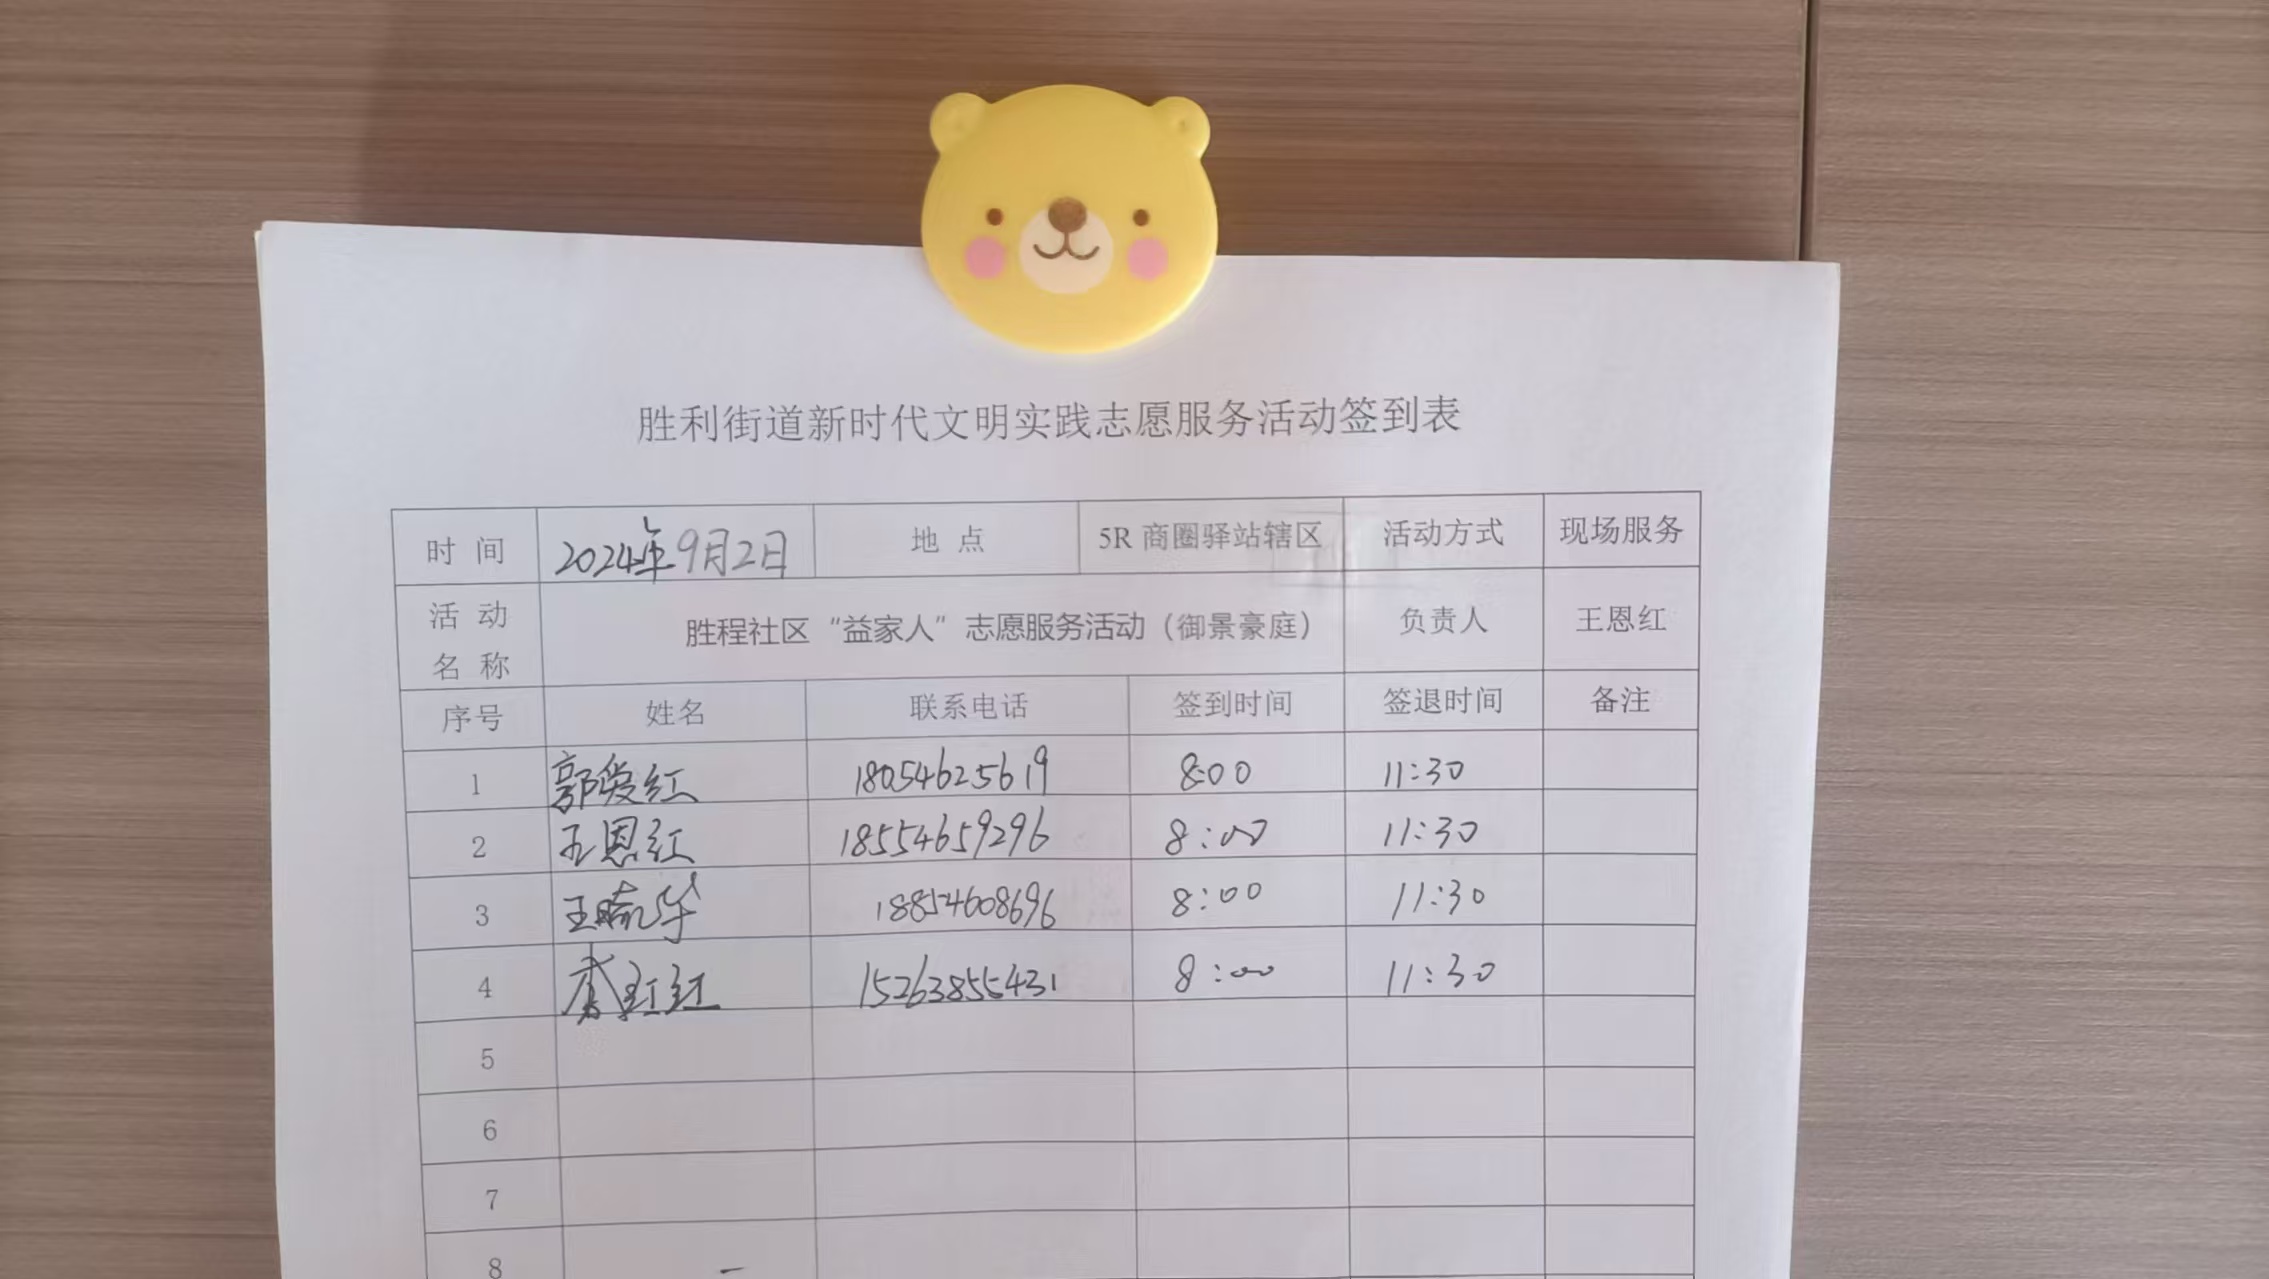 胜利街道新时代文明实践志愿服务活动签到表
时 间 2024年9月2日 地 点 5R 商圈驿站辖区 活动方式 现场服务
活 动 名 称 胜程社区“益家人”志愿服务活动（御景豪庭） 负责人 王恩红
序号 姓名 联系电话 签到时间 签退时间 备注
1 郭爱红 18054625619 8:00 11:30
2 王恩红 18554659296 8:00 11:30
3 王晓华 18854608696 8:00 11:30
4 15263855431 8:00 11:30
5
6
7
8